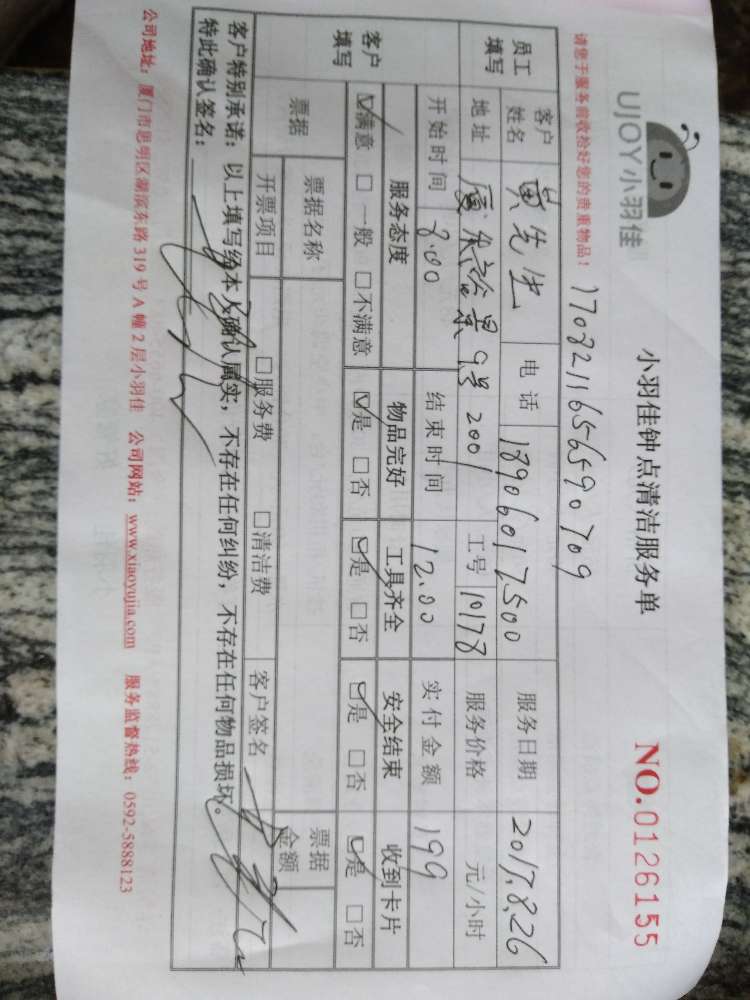 UJOY小羽佳
小羽佳钟点清洁服务单
NO.0126155
请您于服务前收拾好您的贵重物品！
1708211656590709
员工填写 客户姓名 黄先生 电话 18906017500 服务日期 2017.8.26
地址 厦禾裕景9号2001 工号 10178 服务价格 元/小时
开始时间 8.00 结束时间 12.00 实付金额 199
客户填写 服务态度 物品完好 工具齐全 安全结束 收到卡片
☑满意 □一般 □不满意 ☑是 □否 ☑是 □否 ☑是 □否 ☑是 □否
票据 票据名称 票据金额
开票项目 □服务费 □清洁费 客户签名
客户特别承诺：以上填写经本人确认属实，不存在任何纠纷，不存在任何物品损坏。
特此确认签名：
公司地址：厦门市思明区湖滨东路319号A幢2层小羽佳 公司网站：www.xiaoyujia.com 服务监督热线：0592-5888123